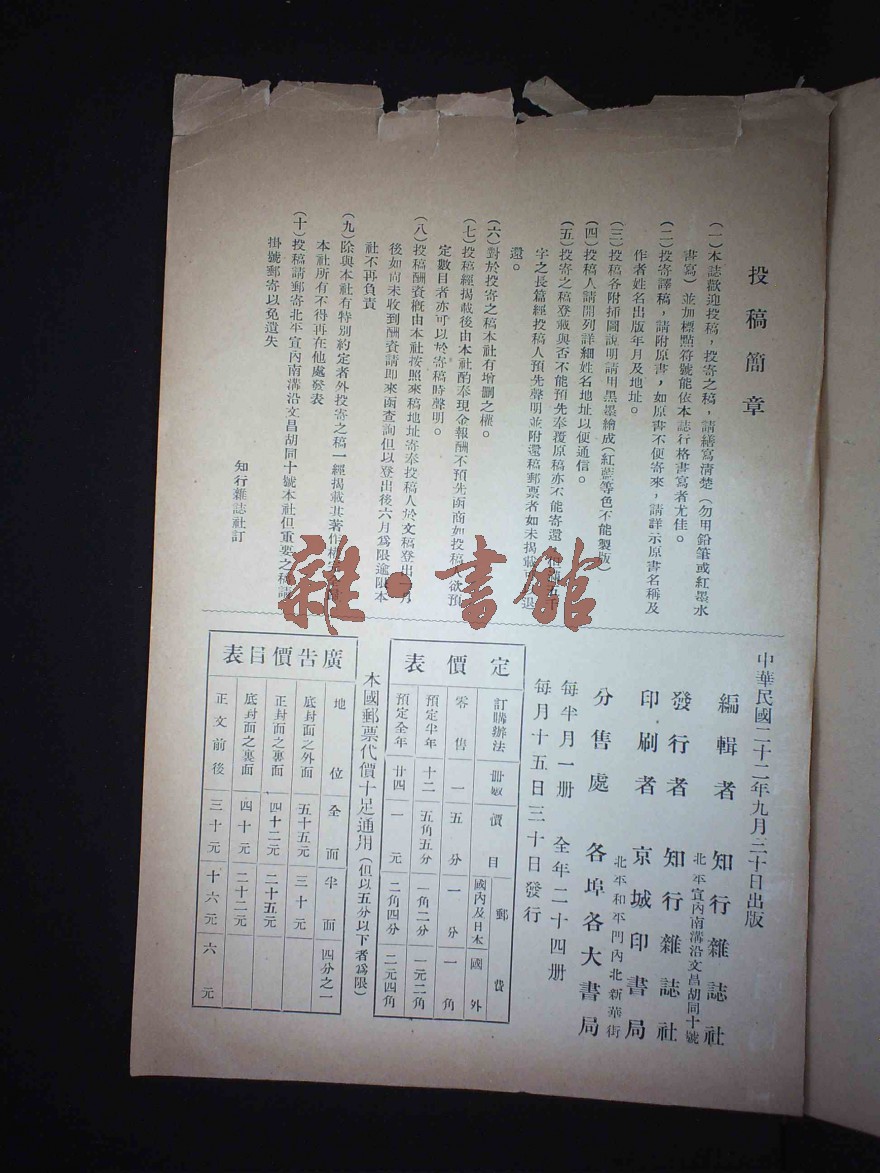 投稿簡章
(一)本誌歡迎投稿，投寄之稿，請繕寫清楚(勿用鉛筆或紅墨水
書寫)並加標點符號能依本誌行格書寫者尤佳。
(二)投寄譯稿，請附原書，如原書不便寄來，請詳示原書名稱及
作者姓名出版年月及地址。
(三)投稿各附插圖說明請用黑墨繪成(紅藍等色不能製版)
(四)投稿人請開列詳細姓名地址以便通信。
(五)投寄之稿登載與否不能預先奉覆原稿亦不能寄還
字之長篇經投稿人預先聲明並附還稿郵票者如未揭載 退
還。
(六)對於投寄之稿本社有增刪之權。
(七)投稿經揭載後由本社酌奉現金報酬不預先函商如投稿人欲預
定數目者亦可以於寄稿時聲明。
(八)投稿酬資概由本社按照來稿地址寄奉投稿人於文稿登出 月
後如尚未收到酬資請即來函查詢但以登出後六月爲限逾限本
社不再負責
(九)除與本社有特別約定者外投寄之稿一經揭載其著作權
本社所有不得再在他處發表
(十)投稿請郵寄北平宣內南溝沿文昌胡同十號本社但重要之稿請
掛號郵寄以免遺失
知行雜誌社訂
中華民國二十二年九月三十日出版
編輯者 知行雜誌社
北平宣內南溝沿文昌胡同十號
發行者 知行雜誌社
印刷者 京城印書局
北平和平門內北新華街
分售處 各埠各大書局
每半月一册 全年二十四册
每月十五日三十日發行
定價表
訂購辦法 册數 價目 郵費 國內及日本 國外
零售 一 五分 一分 一角
預定半年 十二 五角五分 一角二分 一元二角
預定全年 廿四 一元 二角四分 二元四角
本國郵票代價十足通用(但以五分以下者爲限)
廣告價目表
地位 全面 半面 四分之一
底封面之外面 五十五元 三十元
正封面之裏面 四十二元 二十五元
底封面之裏面 四十元 二十二元
正文前後 三十元 十六元 六元
雜·書館